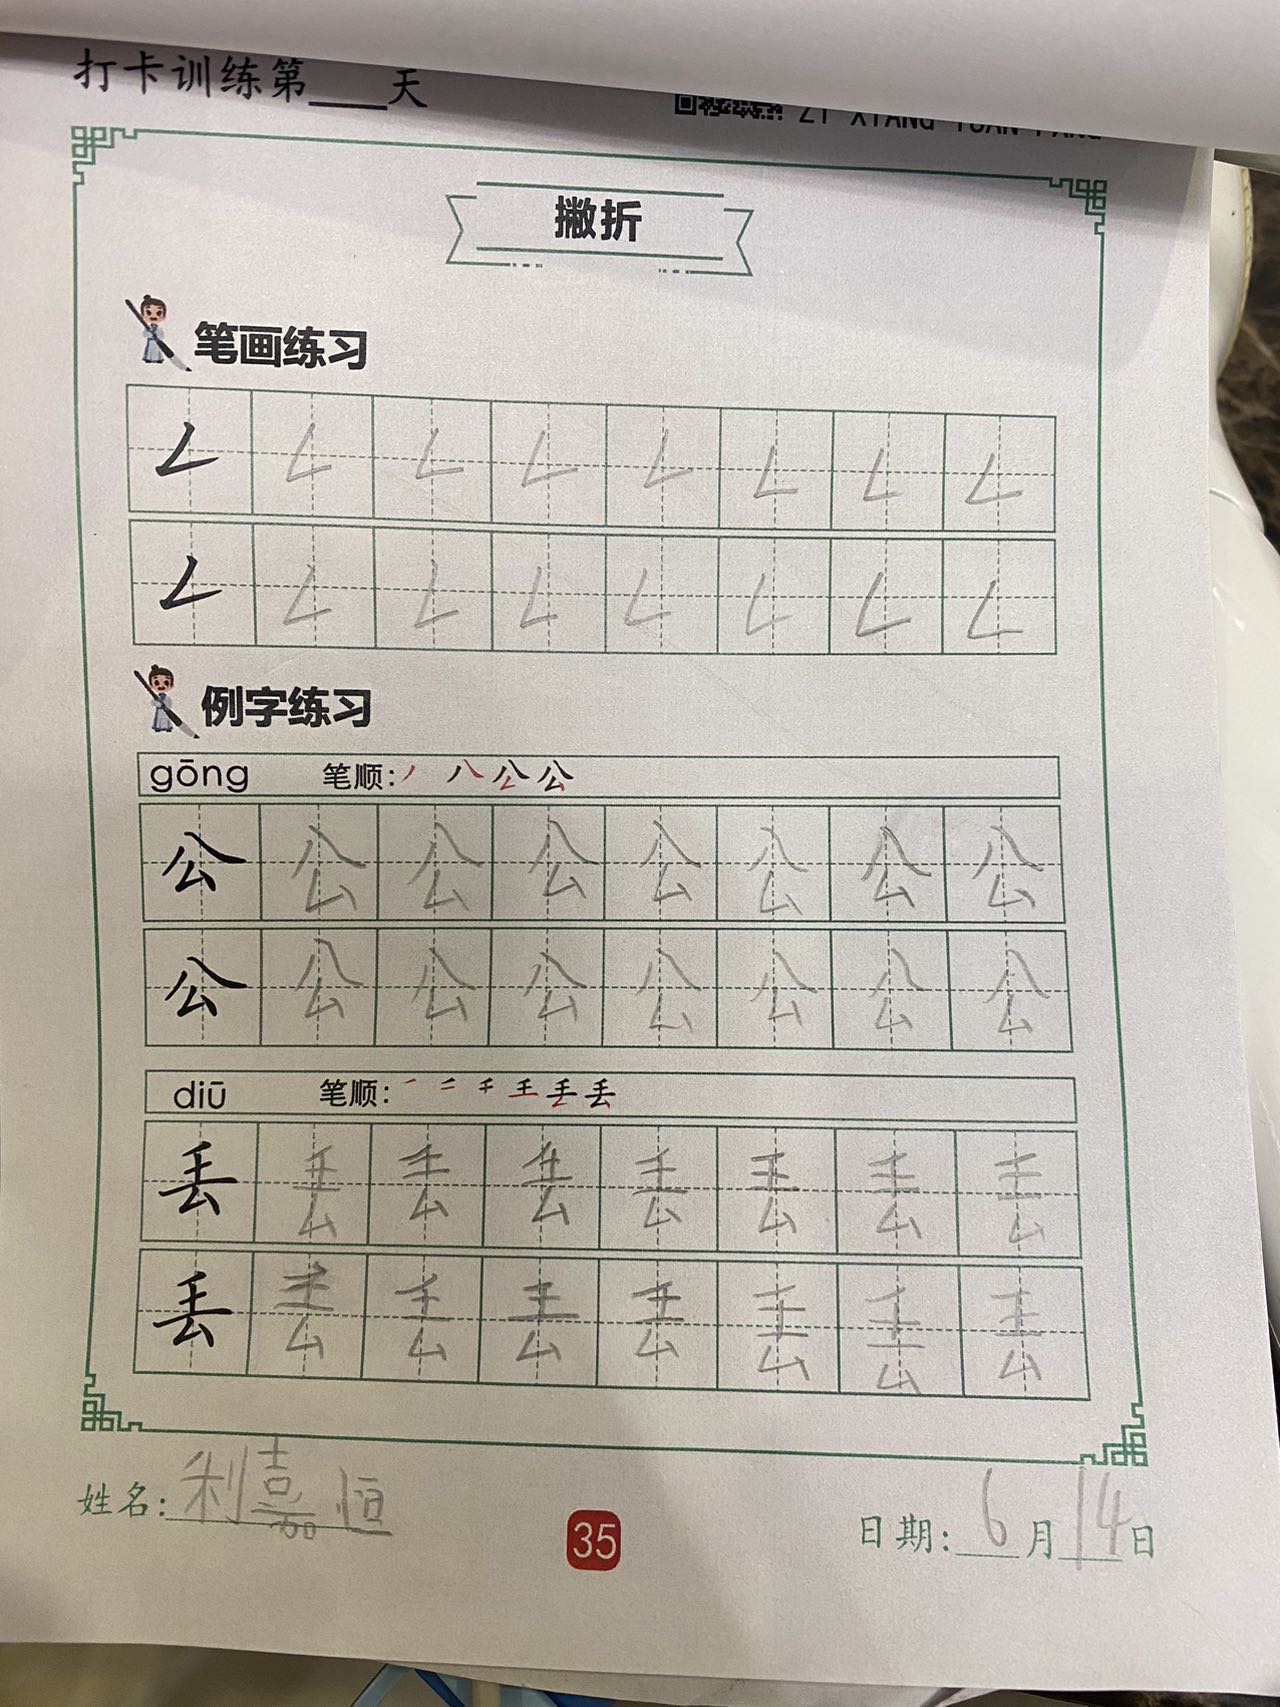 打卡训练第___天
ZI XIANG YUAN FANG
撇折
笔画练习
例字练习
gōng 笔顺: 丿 八 公 公
公 公 公 公 公 公 公 公
公 公 公 公 公 公 公 公
diū 笔顺: 一 二 千 王 丢 丢
丢 丢 丢 丢 丢 丢 丢 丢
丢 丢 丢 丢 丢 丢 丢 丢
姓名: 利嘉恒
35
日期: 6月14日